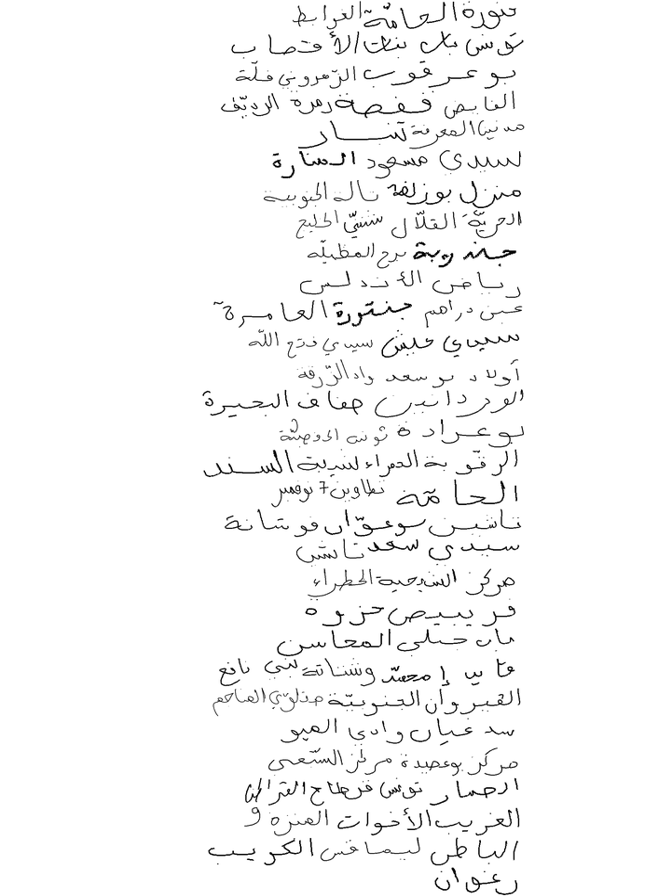 منورة الحامّة الغرابط
تونس باب بنات الأقصاب
بوعرقوب الزهروني فلّة
الفايض قفصة زهرة الرديّف
مدنين المعرفة تنسار
سيدي مسعود المنارة
منزل بوزلفة تالة الجنوبية
الحريّة القلّال شنني الخليج
جندوبة برج المظيلّة
رياض الأندلس
عين دراهم جنتورة العامرة
سيدي عيش سيدي فتح اللّه
أولاد بوسعد واد الزّرقة
الوردانين ضفاف البحيرة
بوعرادة تونس
الرقوبة الحمراء لسدية السند
الحامّة تطاوين 7 نوفمبر
تاشين بوعوّان فوشانة
سيدي سعد
مركز الشيحية الخضراء
قريبيص حزوة
باب جبلي المحاسن
محمّد وشتاتة بني نافع
القيروان الجنوبيّة
سد عيان وادي
مركز بوعصيدة مركز السّعي
الحصار تونس قرطاج
الغريب الأخوات المنزه 9
الباطن ليمافس الكريب
زغوان